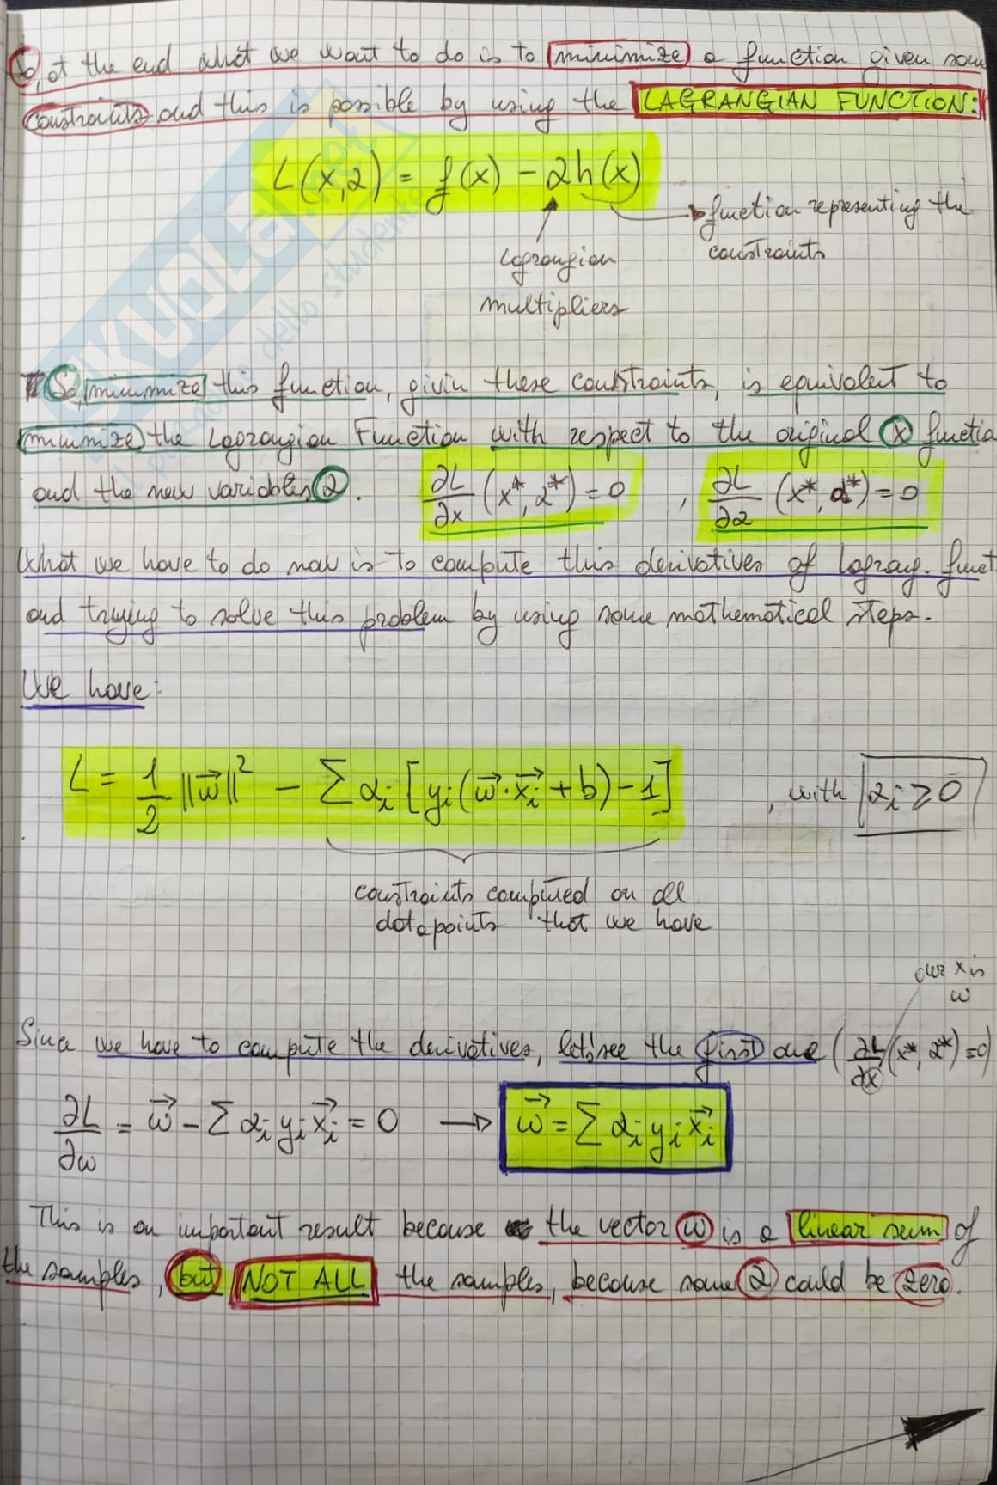 So, at the end what we want to do is to minimize a function given some
constraints and this is possible by using the LAGRANGIAN FUNCTION:
L(x,α) = f(x) - αh(x)
function representing the
constraints
Lagrangian
multipliers
So, minimize this function, givin these constraints, is equivalent to
minimize the Lagrangian Function with respect to the original x functio
and the new variables α. ∂L/∂x (x*, α*) = 0 , ∂L/∂α (x*, α*) = 0
What we have to do now is to compute this derivatives of Lagrang. funct
and trying to solve this problem by using some mathematical steps.
We have:
L = 1/2 ||w⃗||² - Σ αᵢ [yᵢ(w⃗·x⃗ᵢ + b) - 1] , with αᵢ ≥ 0
constraints computed on all
datapoints that we have
our x is
w
Since we have to compute the derivatives, let's see the first one (∂L/∂x (x*, α*) = 0)
∂L/∂w = w⃗ - Σ αᵢ yᵢ x⃗ᵢ = 0 → w⃗ = Σ αᵢ yᵢ x⃗ᵢ
This is an important result because the vector w is a linear sum of
the samples, but NOT ALL the samples, because some α could be zero.